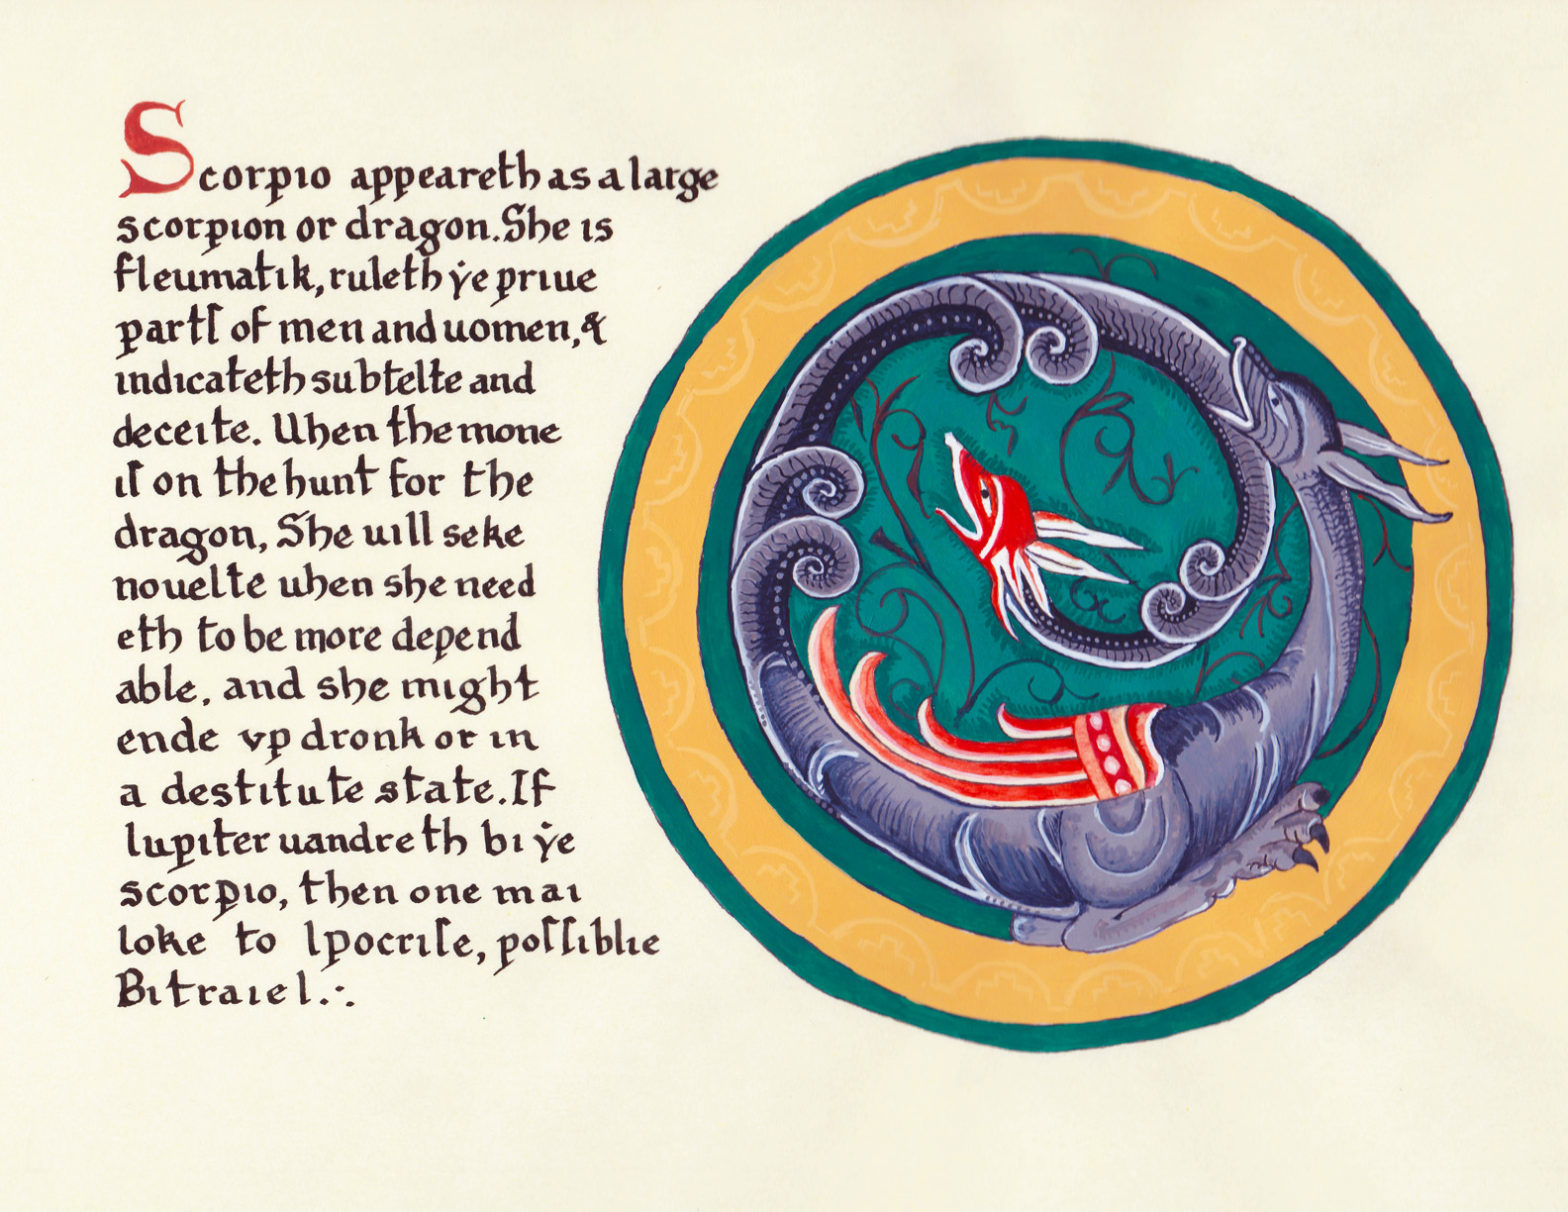 Scorpıo appeareth as a large
scorpıon or dragon. She ıs
fleumatık, ruleth ẏe prıue
partſ of men and uomen, &
ındıcateth subtelte and
deceıte. Uhen the mone
ıſ on the hunt for the
dragon, She uıll seke
nouelte uhen she need
eth to be more depend
able, and she mıght
ende vp dronk or ın
a destıtute state. If
Iupıter uandreth bı ẏe
scorpıo, then one maı
loke to Ipocrıſe, poſſıblıe
Bıtraıel.∴